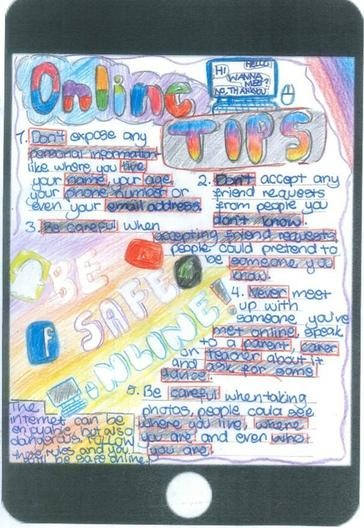 Online
TIPS
Hi
Hello
WANNA
MEET?
NO, THANKYOU
1. Don't expose any
personal information
like where you live,
your name, your age,
your phone number or
even your email address
2. Don't accept any
friend requests
from people you
don't know.
3. Be careful when
accepting friend requests
people could pretend to
be someone you
know.
BE
SAFE
ONLINE!
f
4. Never meet
up with
someone you've
met online, speak
to a parent, carer
or teacher about it
and ask for some
advice.
5. Be careful when taking
photos, people could see
where you live, where
you are and even who
you are.
The
internet can be
enjoyable, but also
dangerous. Follow
these rules and you
will be safe online!